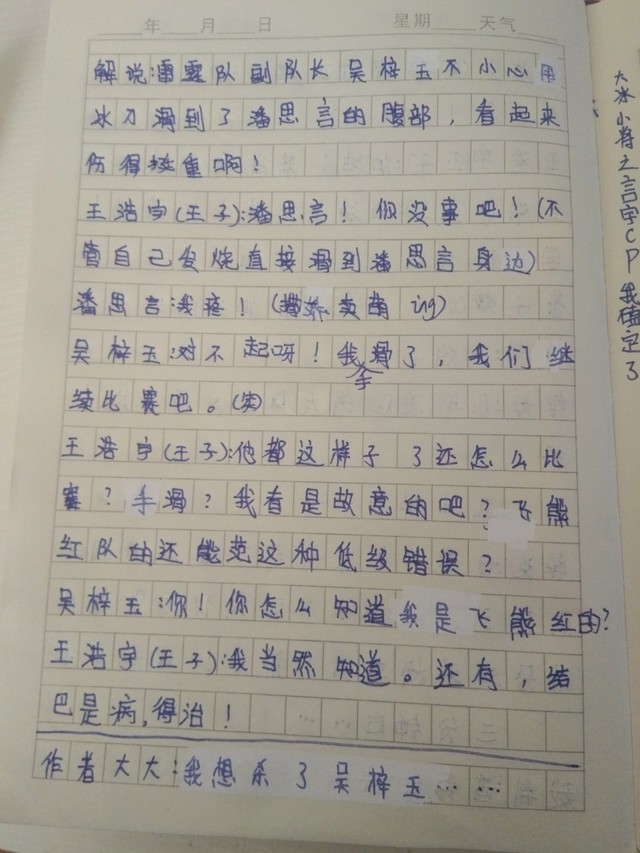 年 月 日 星期 天气
解说:雷霆队副队长吴梓玉不小心用
冰刀滑到了潘思言的腹部,看起来
伤得挺重啊!
王浩宇(王子):潘思言!你没事吧!(不
管自己发烧直接滑到潘思言身边)
潘思言:我疼!(撒娇卖萌ing)
吴梓玉:对不起呀!我手滑了,我们继
续比赛吧。(笑)
王浩宇(王子):他都这样子了还怎么比
赛?手滑?我看是故意的吧?飞熊
红队的还能范这种低级错误?
吴梓玉:你!你怎么知道我是飞熊红的?
王浩宇(王子):我当然知道。还有,结
巴是病,得治!
作者大大:我想杀了吴梓玉……
大冰小将之言宇CP我磕定了